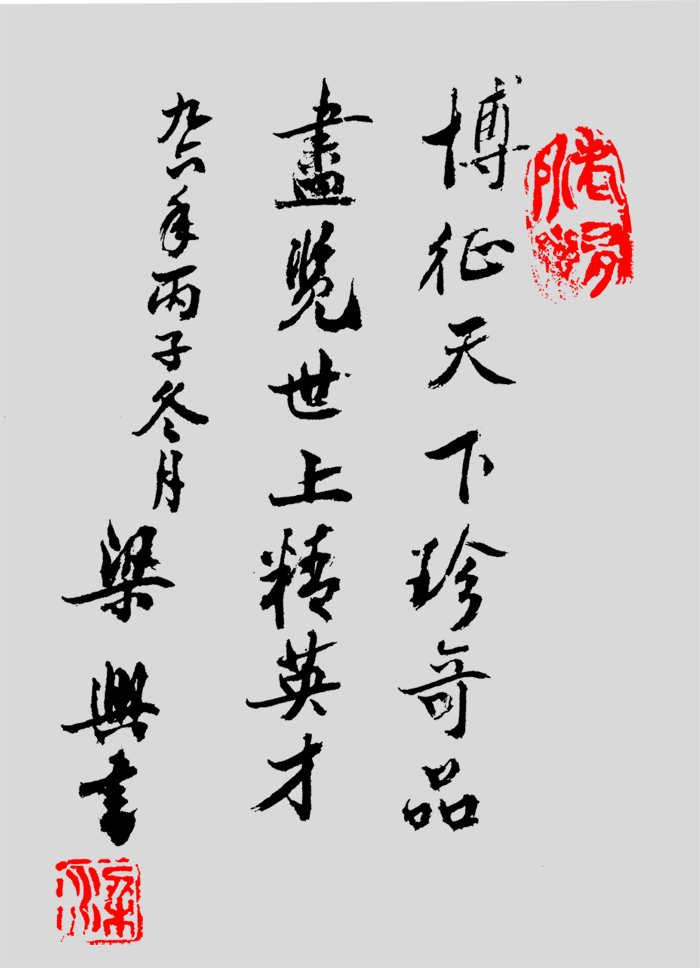 博征天下珍奇品
盡览世上精英才
九六年丙子冬月
梁興书